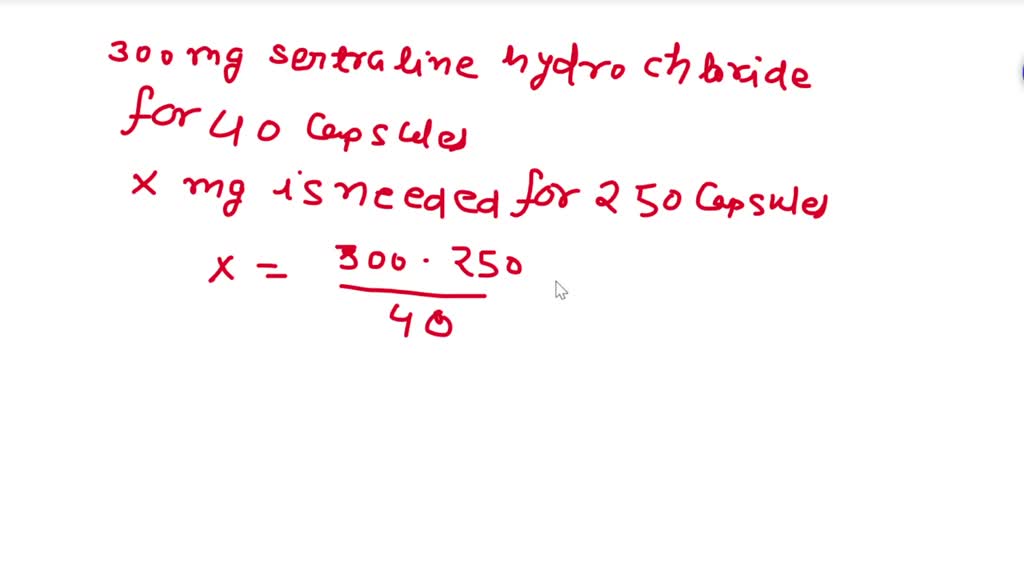 300 mg sertraline hydro chloride
for 40 capsules
x mg is needed for 250 capsules
x = 300 . 250
40